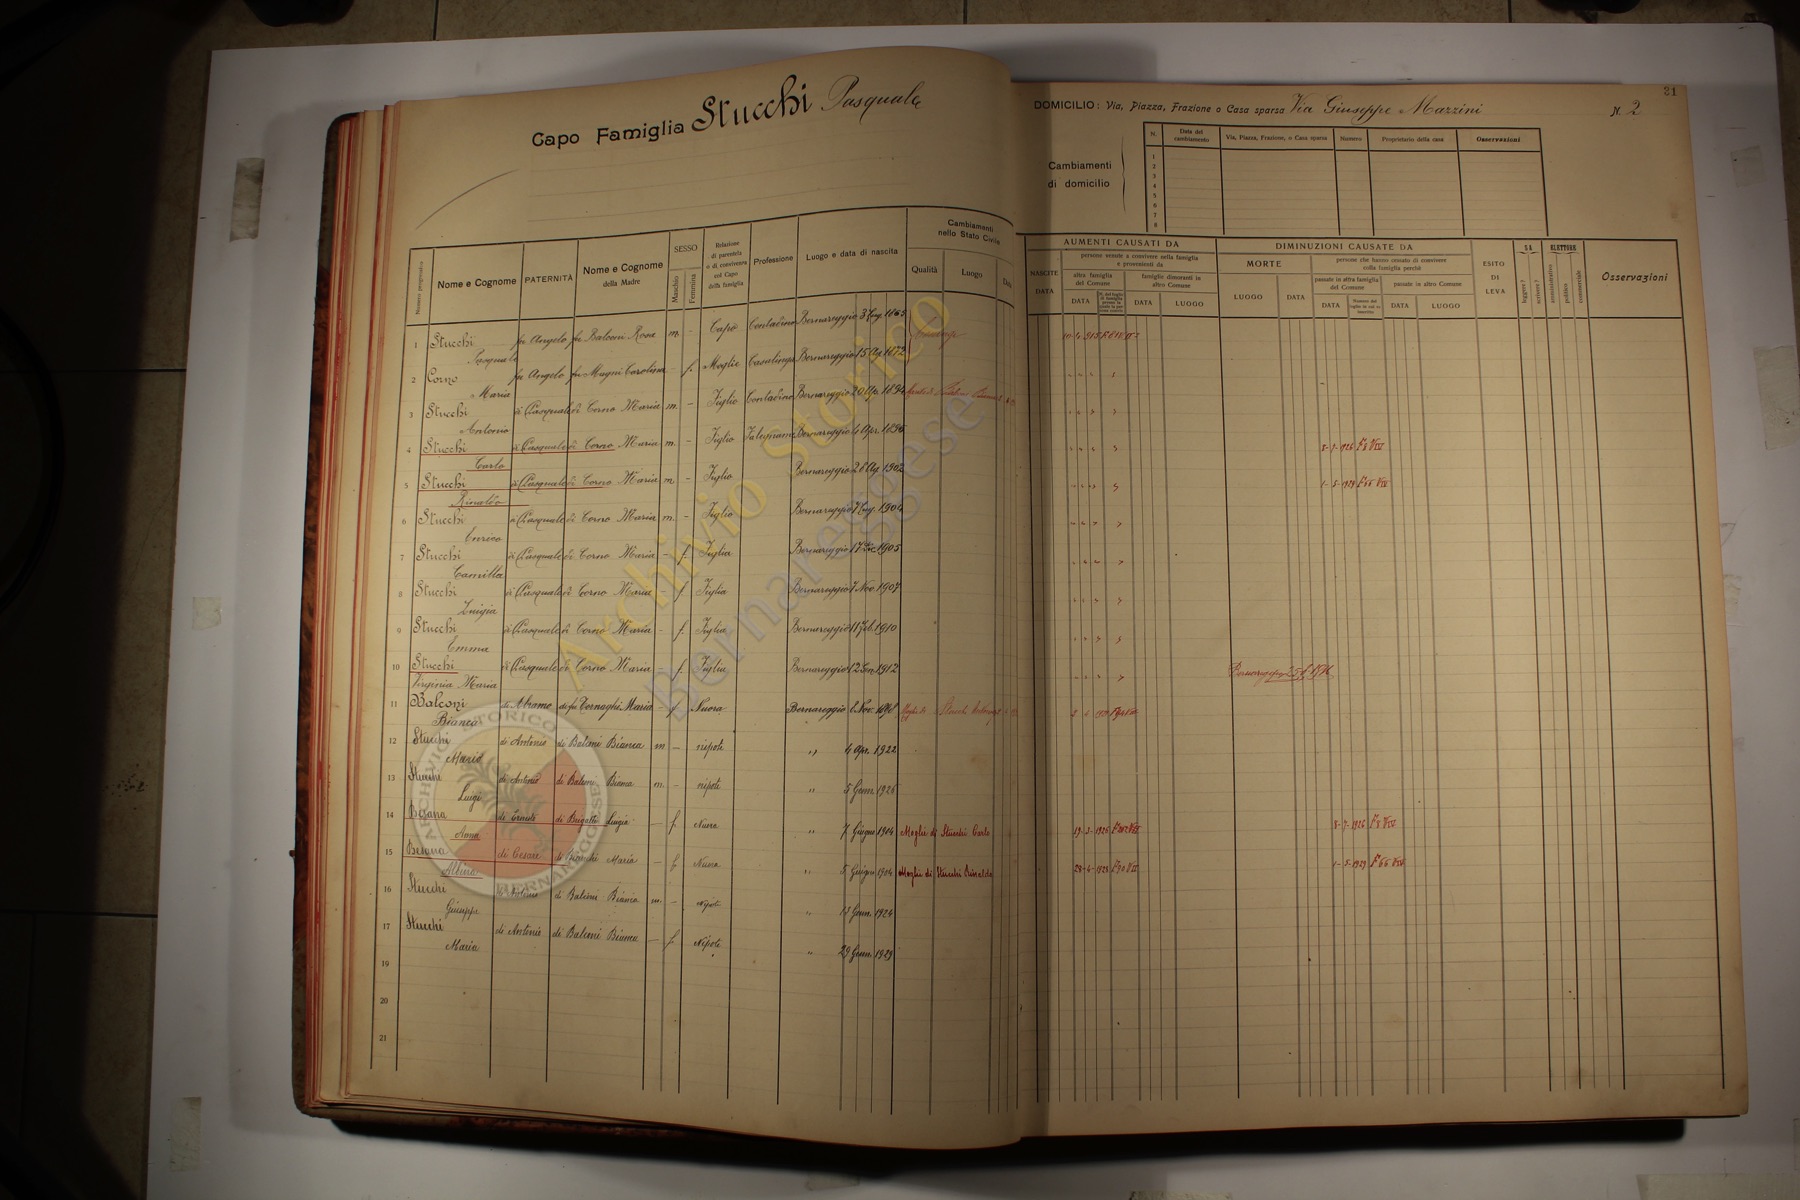 Capo Famiglia Stucchi Pasquale
DOMICILIO: Via, Piazza, Frazione o Casa sparsa Via Giuseppe Mazzini N. 2
31
Cambiamenti di domicilio
N. Data del cambiamento Via, Piazza, Frazione, o Casa sparsa Numero Proprietario della casa Osservazioni
1
2
3
4
5
6
7
8
Numero progressivo Nome e Cognome PATERNITÀ Nome e Cognome della Madre SESSO Maschio Femmina Relazione di parentela o di convivenza col Capo della famiglia Professione Luogo e data di nascita Cambiamenti nello Stato Civile Qualità Luogo Data
NASCITE DATA AUMENTI CAUSATI DA persone venute a convivere nella famiglia e provenienti da altra famiglia del Comune DATA famiglie dimoranti in altro Comune DATA LUOGO
DIMINUZIONI CAUSATE DA MORTE LUOGO DATA persone che hanno cessato di convivere colla famiglia perchè passate in altra famiglia del Comune DATA passate in altro Comune DATA LUOGO
ESITO DI LEVA SA leggere? scrivere? ELETTORE amministrativo politico commerciale Osservazioni
1 Stucchi Pasquale fu Angelo fu Balconi Rosa m. - Capo Contadino Bernareggio 3 Lug. 1865
2 Corno Maria fu Angelo fu Magni Carolina - f. Moglie Casalinga Bernareggio 15 Ag. 1872
3 Stucchi Antonio di Pasquale di Corno Maria m. - Figlio Contadino Bernareggio 20 Ap. 1894
4 Stucchi Carlo di Pasquale di Corno Maria m. - Figlio Falegname Bernareggio 4 Apr. 1896 8-7-1926 F°8 VIV
5 Stucchi Rinaldo di Pasquale di Corno Maria m - Figlio Bernareggio 28 Ag. 1902 1-5-1929 F°66 VIV
6 Stucchi Enrico di Pasquale di Corno Maria m. - Figlio Bernareggio 7 Lug. 1904
7 Stucchi Camilla di Pasquale di Corno Maria - f. Figlia Bernareggio 17 Dic. 1905
8 Stucchi Luigia di Pasquale di Corno Maria - f Figlia Bernareggio 7 Nov. 1907
9 Stucchi Emma di Pasquale di Corno Maria - f. Figlia Bernareggio 11 Feb. 1910
10 Stucchi Virginia Maria di Pasquale di Corno Maria - f. Figlia Bernareggio 12 Gen. 1912 Bernareggio
11 Balconi Bianca di Abramo di fu Cornaghi Maria - f Nuora Bernareggio 6 Nov. 1896 Moglie di Stucchi Antonio
12 Stucchi Mario di Antonio di Balconi Bianca m - nipote " 4 Apr. 1922
13 Stucchi Luigi di Antonio di Balconi Bianca m. - nipote " 5 Genn. 1926
14 Besana Anna di Ernesto di Brigatti Luigia - f. Nuora " 7 Giugno 1904 Moglie di Stucchi Carlo 19-3-1926 8-7-1926 F°8 VIV
15 Besana Albina di Cesare di Bianchi Maria - f Nuora " 5 Giugno 1904 Moglie di Stucchi Rinaldo 28-4-1928 F°90 VII 1-5-1929 F°66 VIV
16 Stucchi Giuseppe di Antonio di Balconi Bianca m. - Nipote " 13 Genn. 1924
17 Stucchi Maria di Antonio di Balconi Bianca - f. Nipote " 29 Genn. 1929
19
20
21
Archivio Storico Bernareggese
ARCHIVIO STORICO BERNAREGGESE